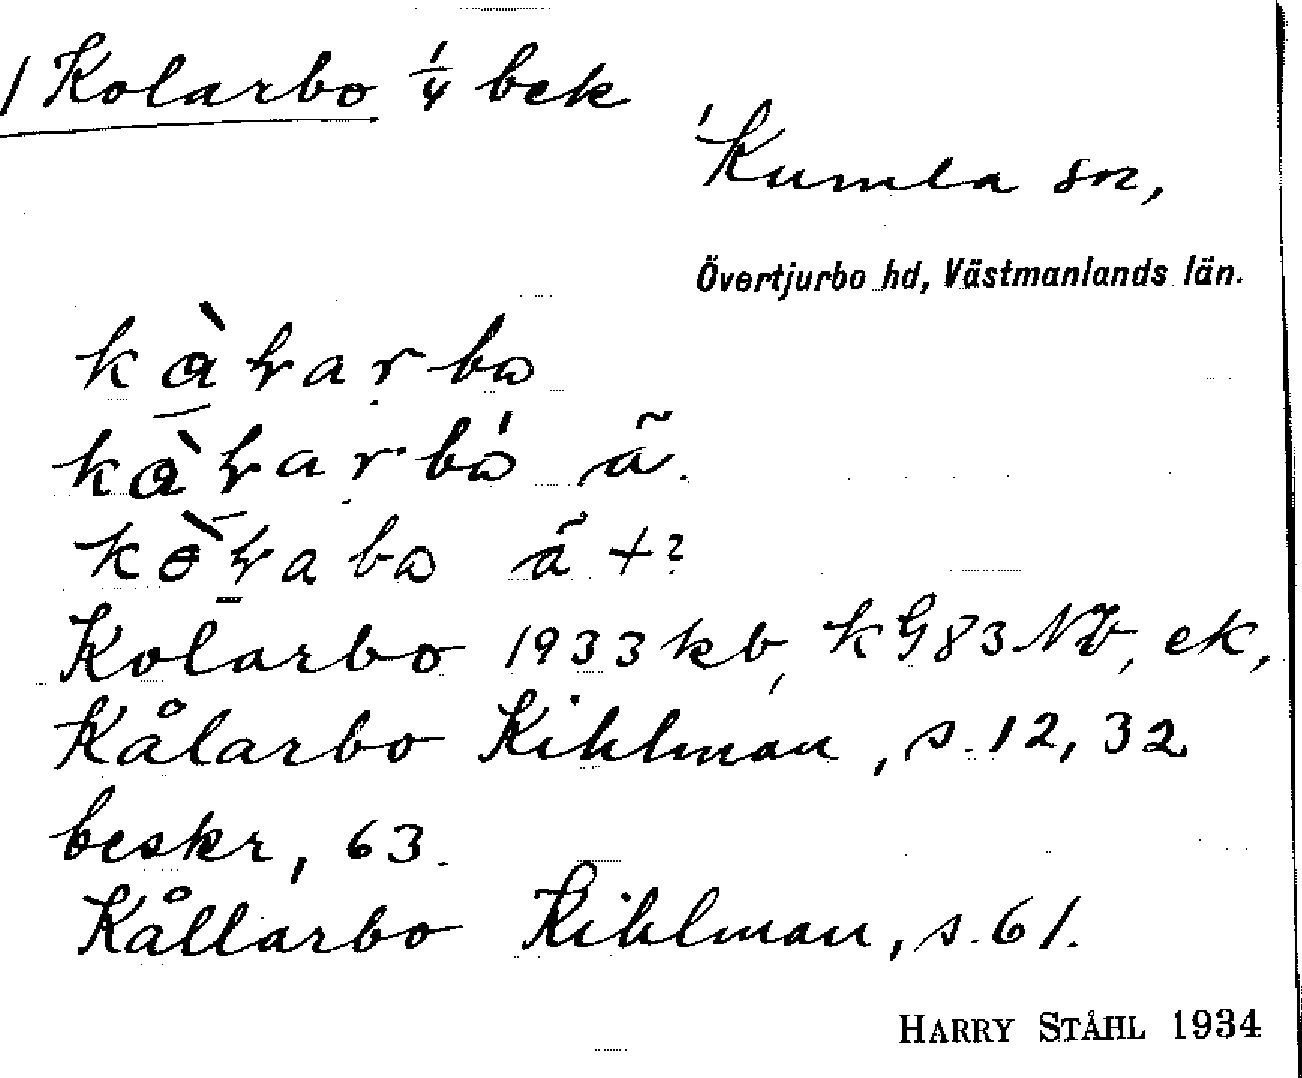 1 Kolarbo 1/4 bek
Kumla sn,
Övertjurbo hd, Västmanlands län.
kàɽarbω
kàɽarbώ ä̃.
kòɽabω ä̃ +?
Kolarbo 1933 kb, k G83 NV, ek,
Kålarbo Kihlman, s. 12, 32
beskr, 63.
Kållarbo Kihlman, s. 61.
HARRY STÅHL 1934